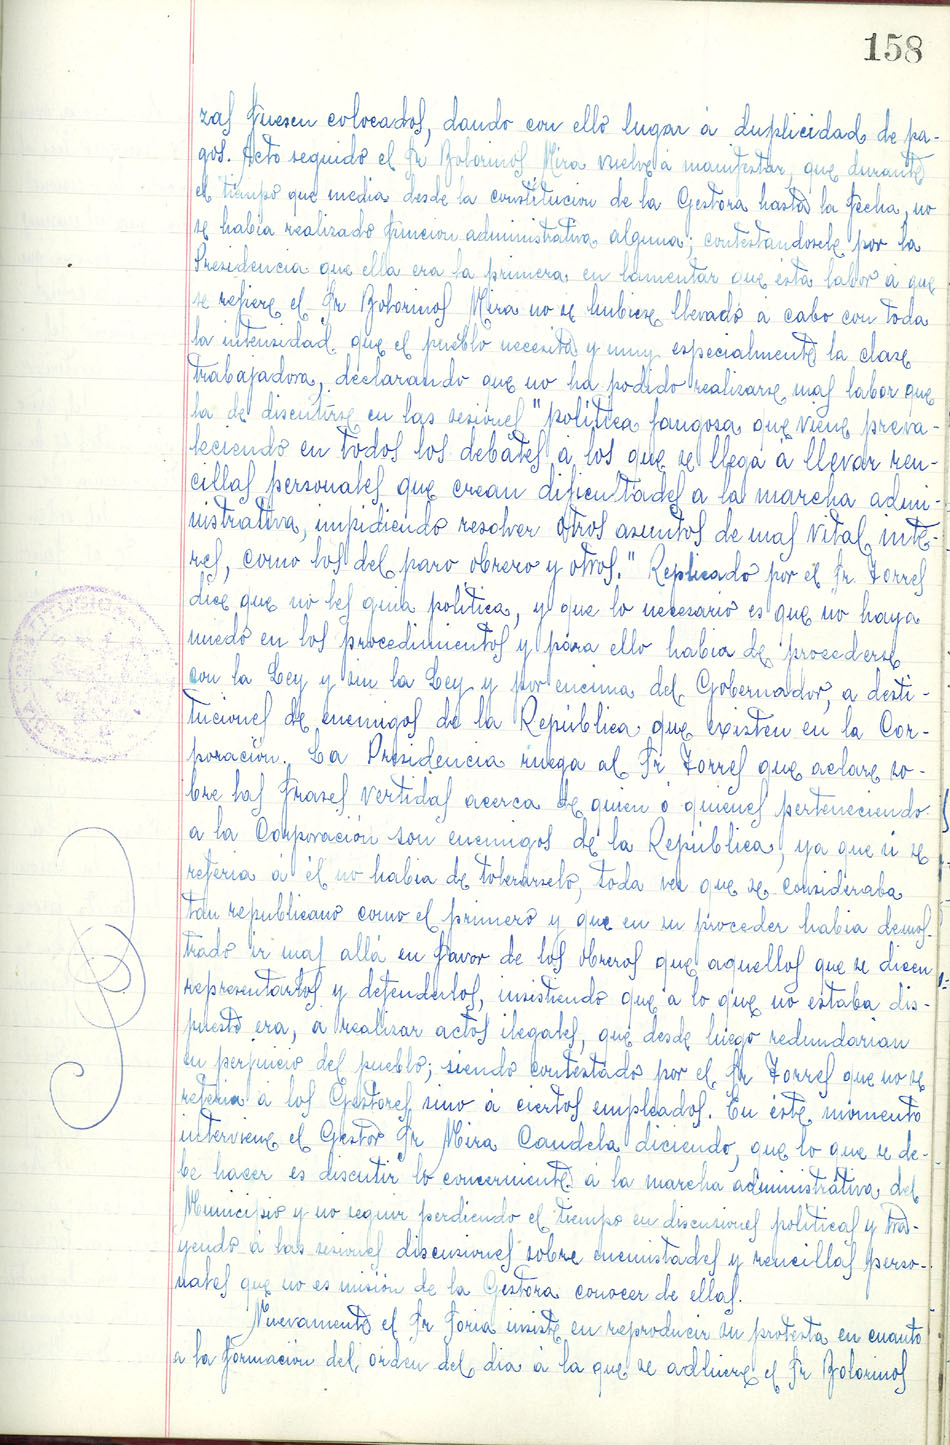 158
zas fuesen colocados, dando con ello lugar á duplicidad de pa-
gos. Acto seguido el Sr Bolorinos Mira vuelve á manifestar, que durante
el tiempo que media desde la constitucion de la Gestora hasta la fecha, no
se habia realizado funcion administrativa alguna; contestandosele por la
Presidencia que ella era la primera en lamentar que ésta labor á que
se refiere el Sr Bolorinos Mira no se hubiese llevado á cabo con toda
la intensidad que el pueblo necesita y muy especialmente la clase
trabajadora, declarando que no ha podido realizarse mas labor que
la de discutirse en las sesiones "politica fangosa que viene preva-
leciendo en todos los debates á los que se llega á llevar ren-
cillas personales que crean dificultades a la marcha admi-
nistrativa, impidiendo resolver otros asuntos de mas vital inte-
res, como los del paro obrero y otros." Replicado por el Sr Torres
dice que no les guia politica, y que lo necesario es que no haya
miedo en los procedimientos y para ello habia de procederse
con la Ley y sin la Ley y por encima del Gobernador, a desti-
tuciones de enemigos de la República que existen en la Cor-
poración. La Presidencia ruega al Sr Torres que aclare so-
bre las frases vertidas acerca de quien ó quienes perteneciendo
a la Corporación son enemigos de la República, ya que si se
referia á él no habia de tolerarselo, toda vez que se consideraba
tan republicano como el primero y que en su proceder habia demos-
trado ir mas allá en favor de los obreros que aquellos que se dicen
representarlos y defenderlos, insistiendo que a lo que no estaba dis-
puesto era, á realizar actos ilegales, que desde luego redundarian
en perjuicio del pueblo; siendo contestado por el Sr Torres que no se
referia á los Gestores sino á ciertos empleados. En éste momento
interviene el Gestor Sr Mira Candela diciendo, que lo que se de-
be hacer es discutir lo concerniente á la marcha administrativa del
Municipio y no seguir perdiendo el tiempo en discusiones politicas y tra-
yendo á las sesiones discusiones sobre enemistades y rencillas perso-
nales que no es misión de la Gestora conocer de ellas.
Nuevamente el Sr Soria insiste en reproducir su protesta en cuanto
a la formación del orden del dia á la que se adhiere el Sr Bolorinos